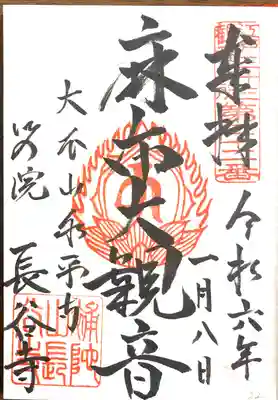 奉拝
令和六年
一月八日
麻布大観音
大本山永平寺
別院
長谷寺